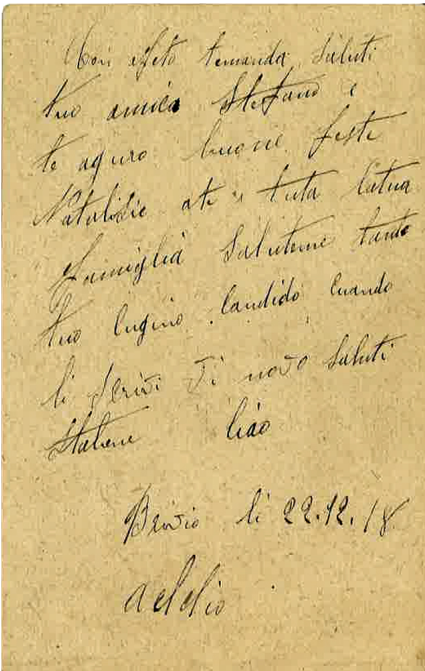 Con afeto temanda saluti
tuo amico Stefano e
te aguro buone feste
Natalizie ate e tuta latua
famiglia Saluteme tanto
tuo Cugino Candido Cuando
li Scrivi Ti novo Saluti
Stabene Ciao
Brivio li 22.12.18
addio